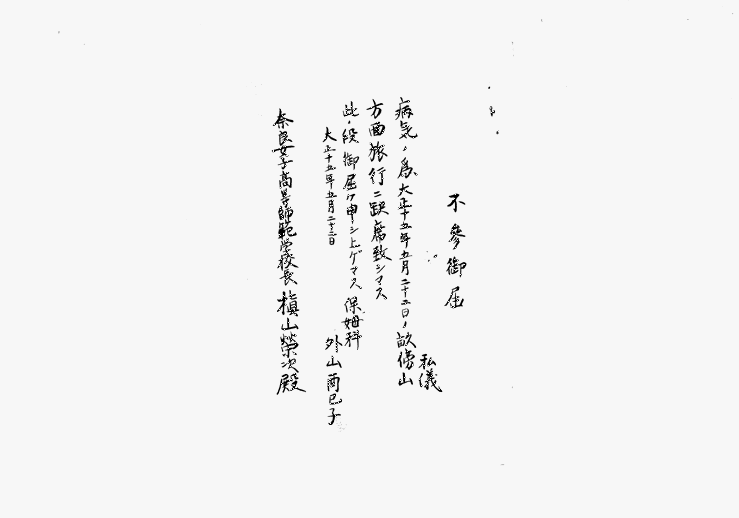 不參御届
私儀
病気ノ為大正十五年五月二十二日ノ畝傍山
方面旅行ニ缺席致シマス
此ノ段御届ケ申シ上ゲマス
大正十五年五月二十三日
保姆科
外山酉己子
奈良女子高等師範学校長 槇山榮次殿